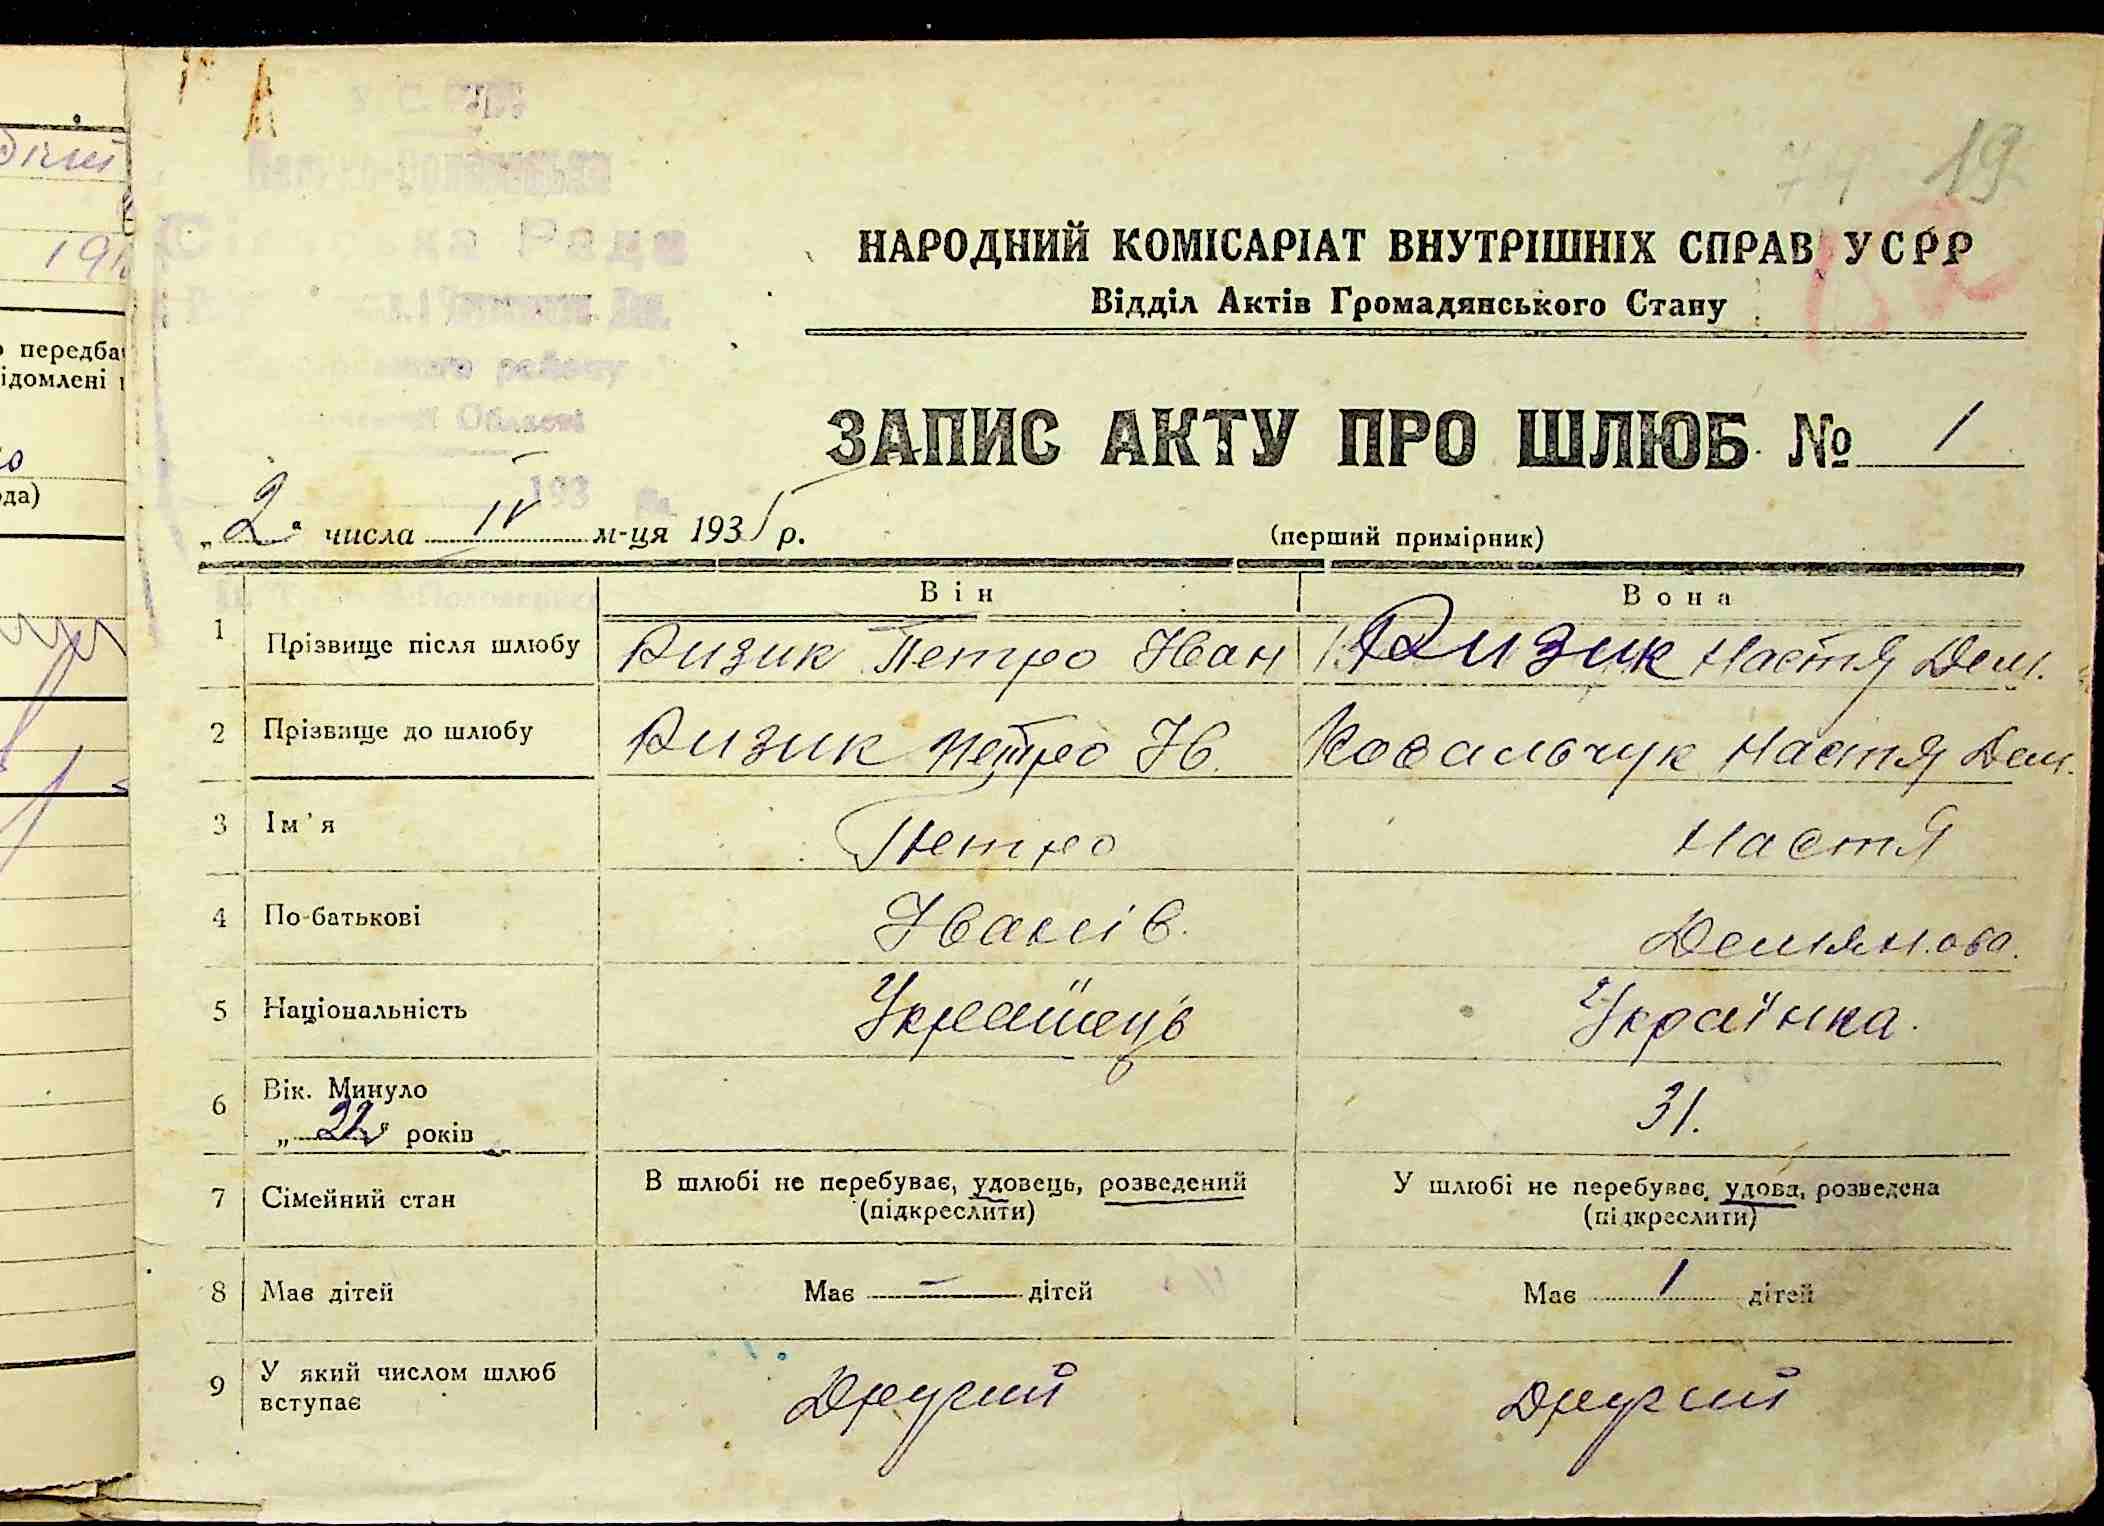 74 19
152
Сільська Рада
району
Області
193
НАРОДНИЙ КОМІСАРІАТ ВНУТРІШНІХ СПРАВ УСРР
Відділ Актів Громадянського Стану
ЗАПИС АКТУ ПРО ШЛЮБ № 1
„2“ числа IV м-ця 1935 р.
(перший примірник)
Він Вона
1 Прізвище після шлюбу Физик Петро Іван Физик Настя Дем.
2 Прізвище до шлюбу Физик Петро Ів. Ковальчук Настя Дем.
3 Ім'я Петро Настя
4 По-батькові Іванів. Демянова.
5 Національність Українець Українка.
6 Вік. Минуло
„22“ років 31.
7 Сімейний стан В шлюбі не перебуває, удовець, розведений У шлюбі не перебуває, удова, розведена
(підкреслити) (підкреслити)
8 Має дітей Має — дітей Має 1 дітей
9 У який числом шлюб
вступає Другий Другий
передба
ідомлені
ода)